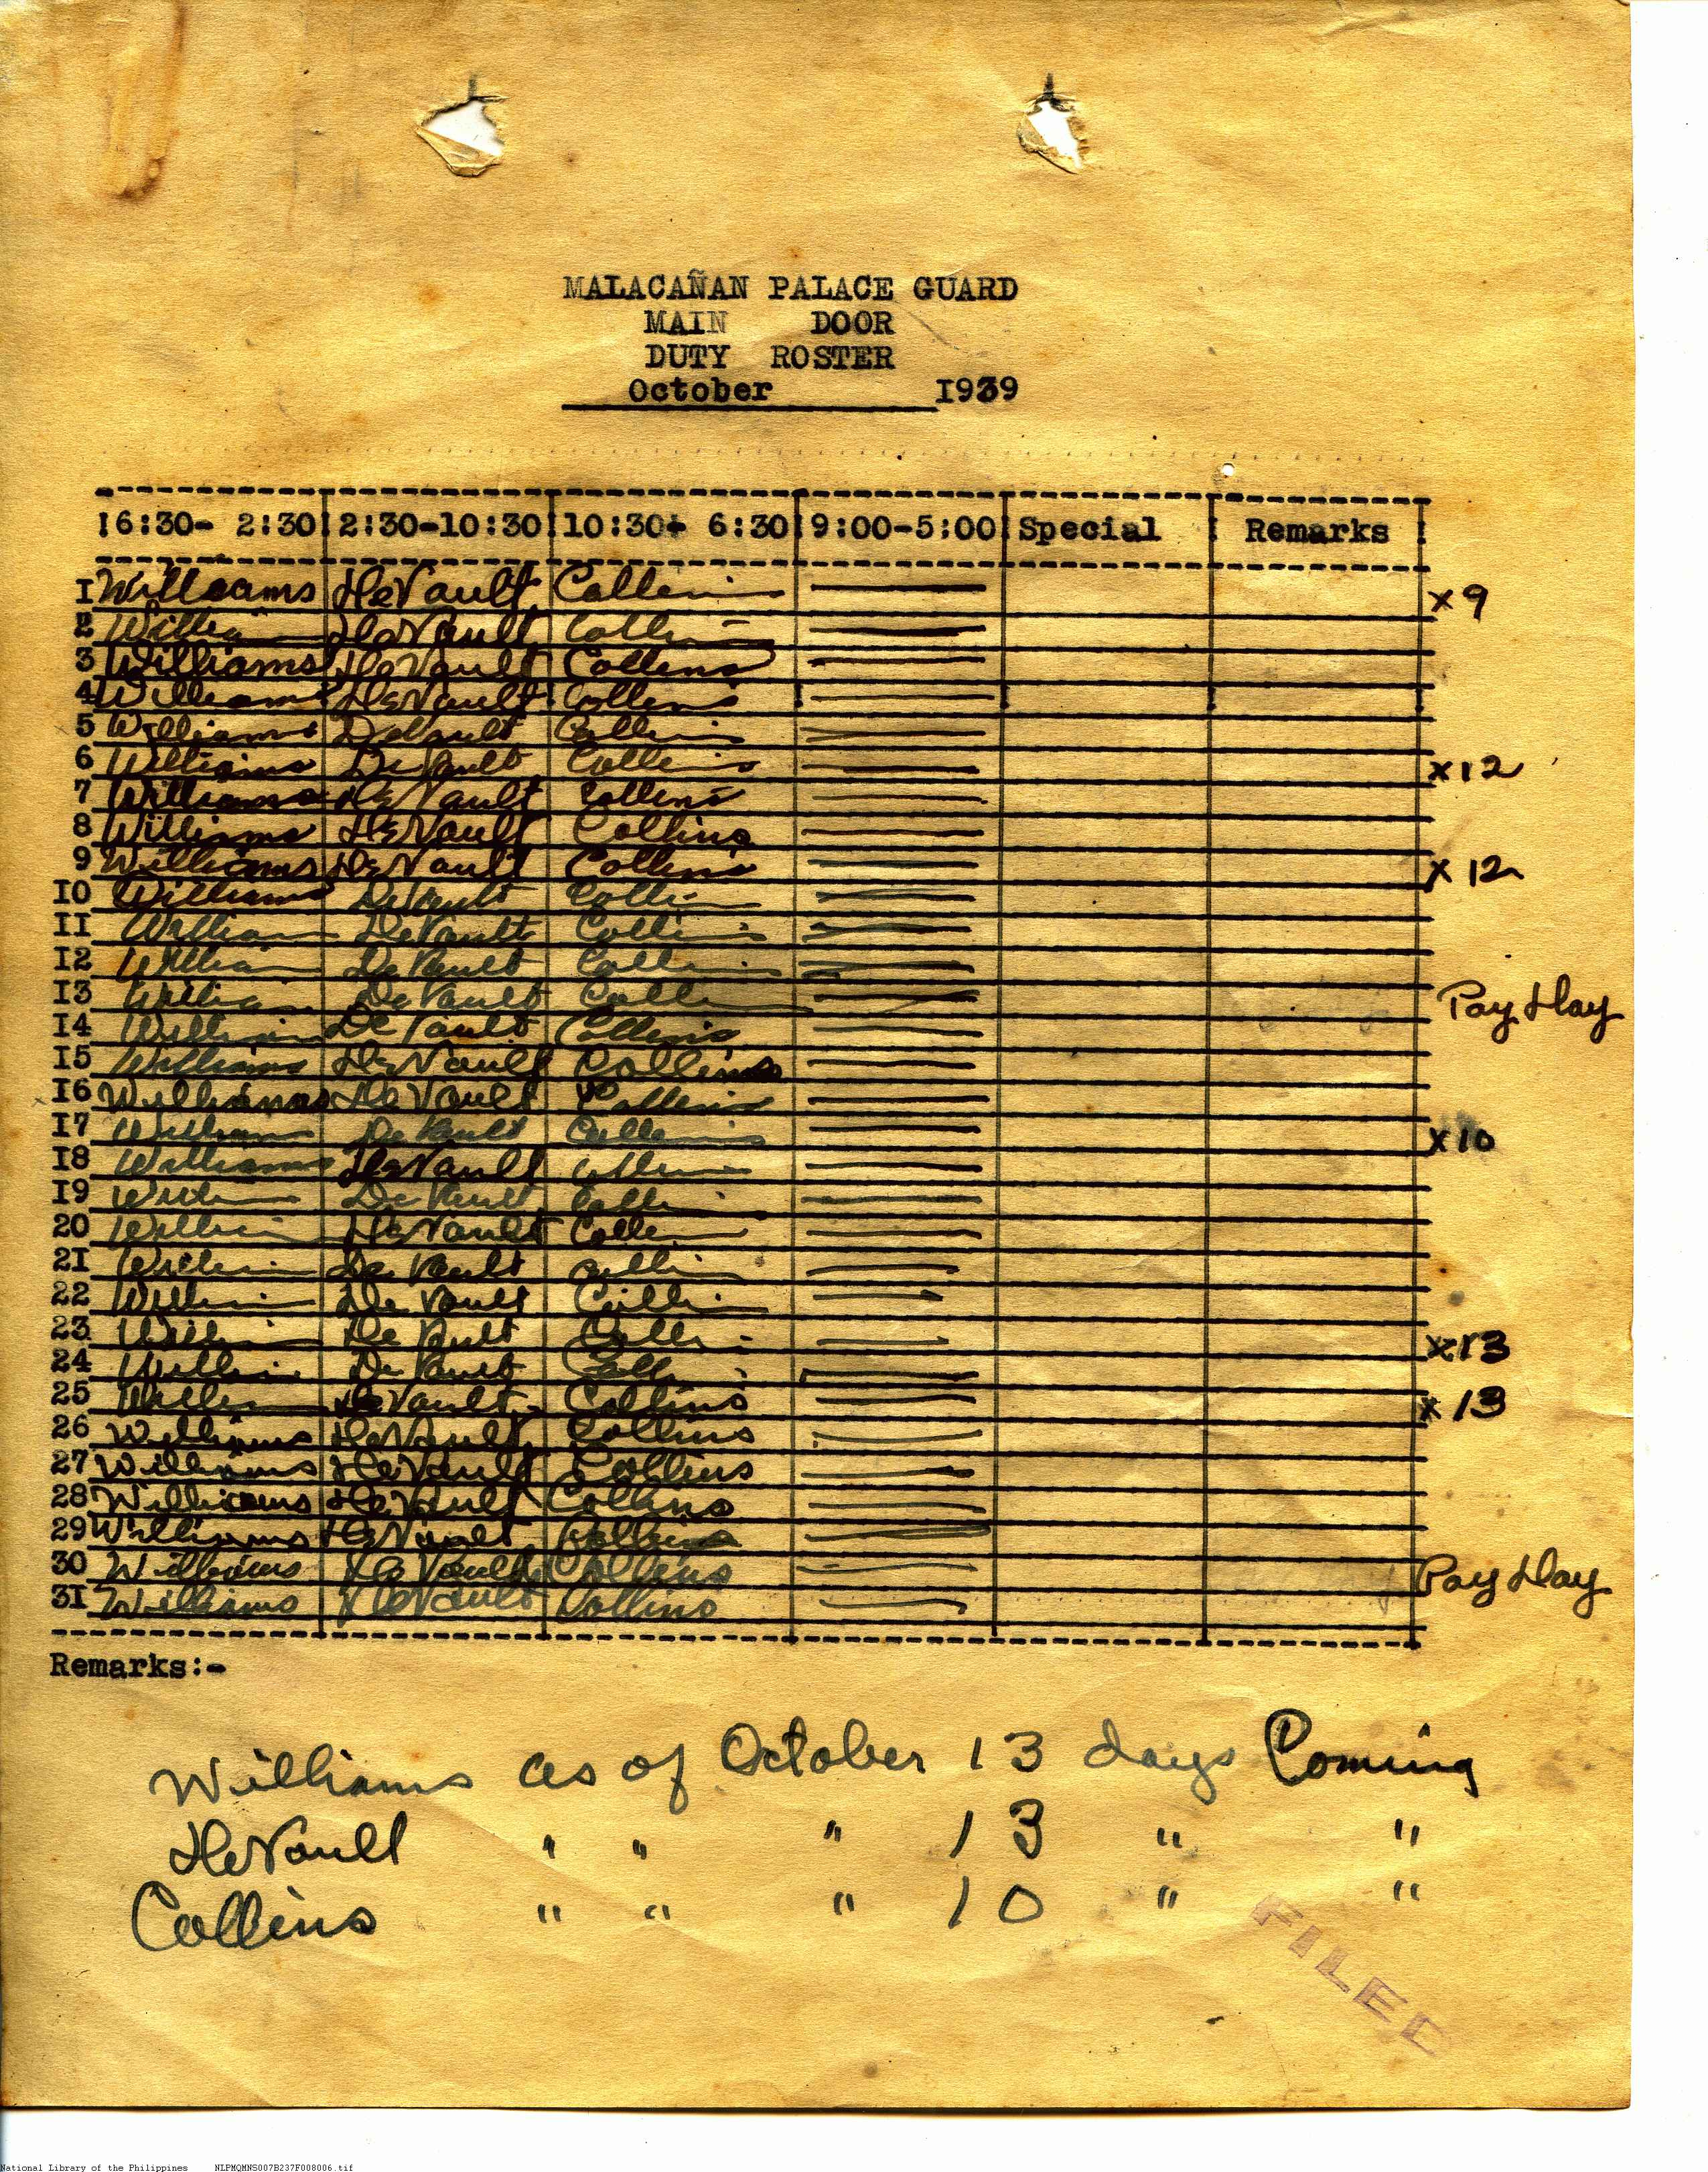 MALACAÑAN PALACE GUARD
MAIN DOOR
DUTY ROSTER
October 1939
6:30- 2:30 2:30-10:30 10:30- 6:30 9:00-5:00 Special Remarks
1 Williams DeVault Collins x 9
2 Williams DeVault Collins
3 Williams DeVault Collins
4 Williams DeVault Collins
5 Williams DeVault Collins
6 Williams DeVault Collins x 12
7 Williams DeVault Collins
8 Williams DeVault Collins
9 Williams DeVault Collins x 12
10 Williams DeVault Collins
11 Williams DeVault Collins
12 Williams DeVault Collins
13 Williams DeVault Collins Pay Day
14 Williams DeVault Collins
15 Williams DeVault Collins
16 Williams DeVault Collins
17 Williams DeVault Collins x 10
18 Williams DeVault Collins
19 Williams DeVault Collins
20 Williams DeVault Collins
21 Williams DeVault Collins
22 Williams DeVault Collins
23 Williams DeVault Collins x 13
24 Williams DeVault Collins
25 Williams DeVault Collins x 13
26 Williams DeVault Collins
27 Williams DeVault Collins
28 Williams DeVault Collins
29 Williams DeVault Collins
30 Williams DeVault Collins Pay Day
31 Williams DeVault Collins
Remarks:-
Williams as of October 13 days Coming
DeVault " " " 13 " "
Collins " " " 10 " "
FILED
National Library of the Philippines NLPMQMNS007B237F008006.tif